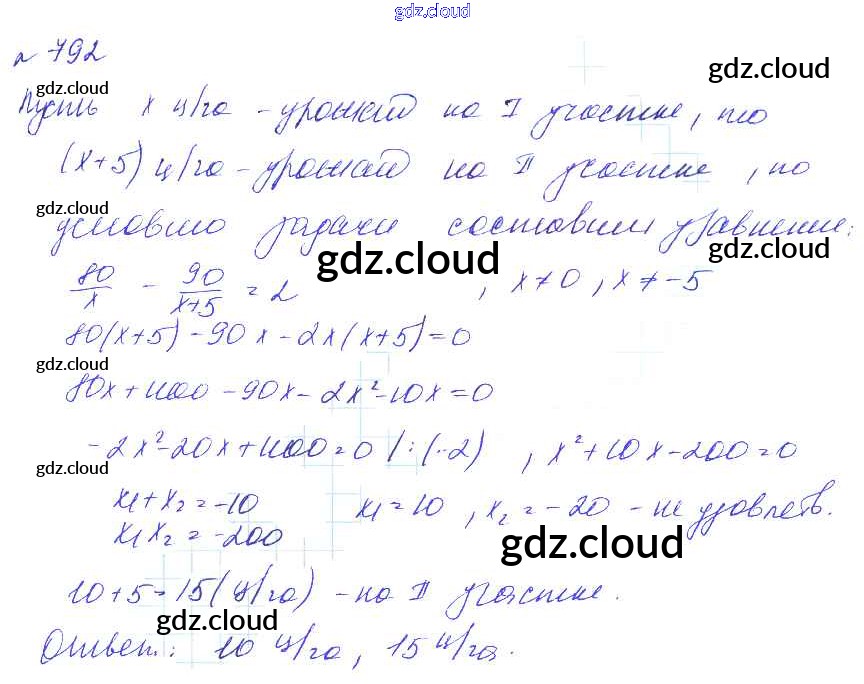 gdz.cloud
№ 792
gdz.cloud
gdz.cloud
Пусть x ц/га - урожай на I участке, то
gdz.cloud
(x+5) ц/га - урожай на II участке, по
gdz.cloud
условию задачи составим уравнение:
gdz.cloud
gdz.cloud
80/x - 90/(x+5) = 2 , x≠0, x≠-5
80(x+5) - 90x - 2x(x+5)=0
gdz.cloud
80x+400-90x-2x²-10x=0
-2x²-20x+400=0 /:(-2) , x²+10x-200=0
gdz.cloud
x₁+x₂=-10 x₁=10, x₂=-20 - не удовлетв.
x₁x₂=-200
gdz.cloud
10+5=15(ц/га) - на II участке.
gdz.cloud
Ответ: 10 ц/га, 15 ц/га.